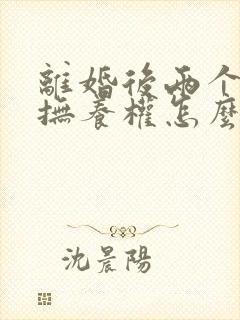 離婚後兩个
撫養權怎麼
沈晨陽